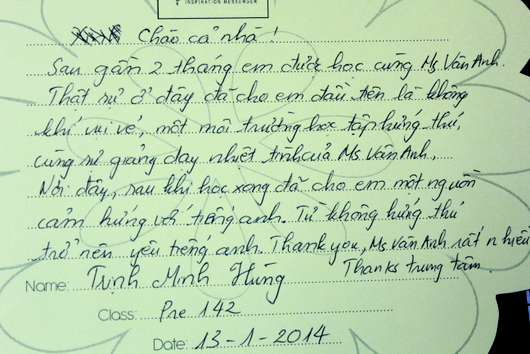 INSPIRATION MESSENGER
Chào cả nhà!
Sau gần 2 tháng em được học cùng Ms Vân Anh.
Thật sự ở đây đã cho em đầu tiên là không
khí vui vẻ, một môi trường học tập hứng thú,
cùng sự giảng dạy nhiệt tình của Ms Vân Anh.
Nơi đây, sau khi học xong đã cho em một nguồn
cảm hứng với tiếng anh. Từ không hứng thú
trở nên yêu tiếng anh. Thank you, Ms Vân Anh rất nhiều
Thanks trung tâm.
Name: Trịnh Minh Hùng
Class: Pre 142
Date: 13-1-2014